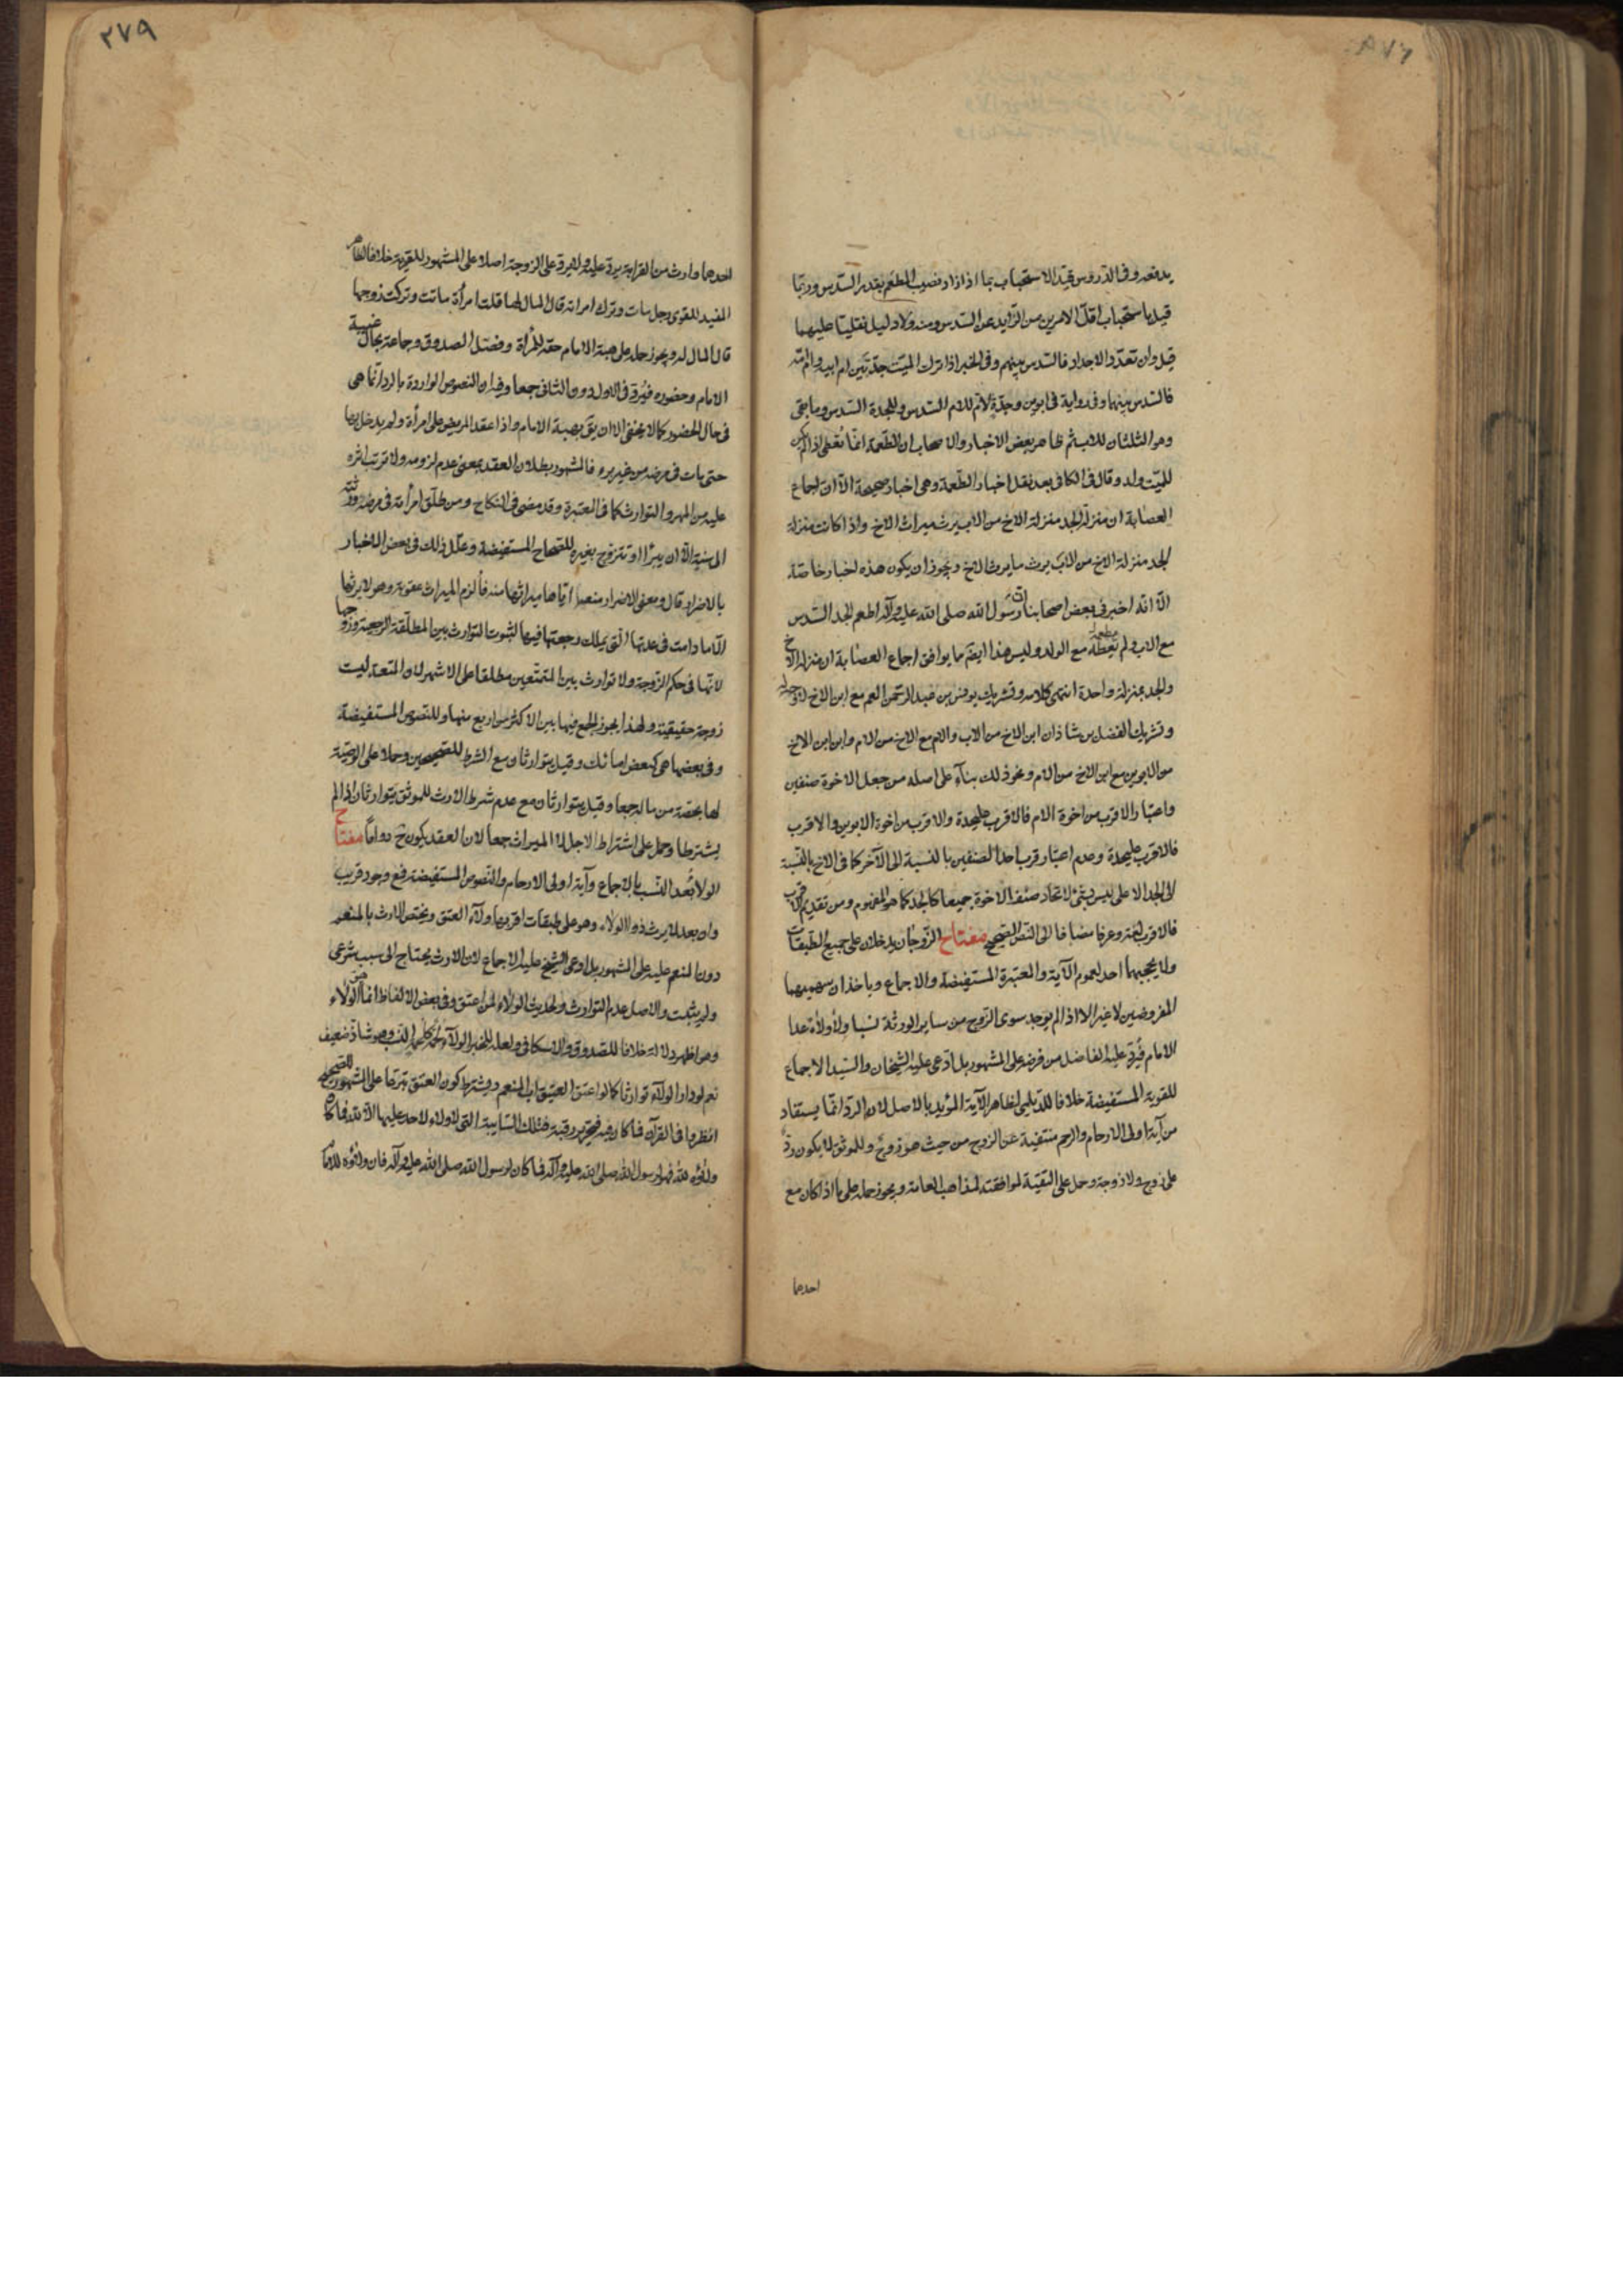 يدفعه وفى الدروس قيد الاستحباب بما اذا زاد نصيب المطعم بقدر السدس وربما
قيل باستحباب اقل الامرين من الزايد عن السدس ومنه ولا دليل نقليا عليهما
قيل وان تعدد الاجداد فالسدس بينهم وفى الخبر اذا ترك الميت جدتين ام ابيه وام امه
فالسدس بينهما وفى رواية فى ابوين وجدة لام للام السدس وللجدة السدس وما بقى
وهو الثلثان للاب ثم ظاهر بعض الاخبار والاصحاب ان الطعمة انما تعطى اذا لم يكن
للميت ولد وقال فى الكافى بعد نقل اخبار الطعمة وهى اخبار صحيحة الا ان اجماع
العصابة ان منزلة الجد منزلة الاخ من الاب يرث ميراث الاخ واذا كانت منزلة
الجد منزلة الاخ من الاب يرث ما يرث الاخ ويجوز ان يكون هذه اخبار خاصة
الا انه اخبرنى بعض اصحابنا ان رسول الله صلى الله عليه وآله اطعم الجد السدس
مع الاب ولم يعطه مع الولد وليس هذا ايضا مما يوافق اجماع العصابة ان منزلة الاخ
والجد بمنزلة واحدة انتهى كلامه وتشريك يونس بن عبد الرحمن العم مع ابن الاخ
وتشريك الفضل بن شاذان ابن الاخ من الاب والام مع الاخ من الام وابن ابن الاخ
من الابوين مع ابن الاخ من الام ونحو ذلك بناء على اصله من جعل الاخوة صنفين
واعتبار الاقرب من اخوة الام فالاقرب عليحدة والاقرب من اخوة الابوين والاقرب
فالاقرب عليحدة وعدم اعتبار قرب احد الصنفين بالنسبة الى الآخر كما فى الاخ بالنسبة
الى الجد الاعلى ليس بشئ لاتحاد صنف الاخوة جميعا كالجد كما هو المفهوم ومن تقديم الاقرب
فالاقرب لغة وعرفا مضافا الى النص الصحيح مفتاح الزوجان يدخلان على جميع الطبقات
ولا يحجبهما احد لعموم الآية والمعتبرة المستفيضة والاجماع وياخذان سهميهما
المفروضين لا غير الا اذا لم يوجد سوى الزوج من ساير الورثة نسبا ولا ولاء عدا
الامام فيرد عليه الفاضل من فرضه على المشهور بل ادعى عليه الشيخان والسيد الاجماع
للقوية المستفيضة خلافا للديلمى لظاهر الآية المؤيد بالاصل لان الرد انما يستفاد
من آية اولى الارحام والرحم منتفية عن الزوج من حيث هو زوج وللموثق لا يكون رد
على زوج ولا زوجة وحمل على التقية لموافقته لمذاهب العامة ويجوز حمله على ما اذا كان مع
احدهما
٢٧٩
احدهما وارث من القرابة يرد عليه ولا يرد على الزوجة اصلا على المشهور للقوية خلافا لظاهر
المفيد للقوى رجل مات وترك امراته قال المال لها قلت امرأة ماتت وتركت زوجها
قال المال له ويجوز حمله على هبة الامام حقه للمرأة وفصل الصدوق وجماعة بحال غيبة
الامام وحضوره فيرد فى الاول دون الثانى جمعا وفيه ان النصوص الواردة بالرد انما هى
فى حال الحضور كما لا يخفى الا ان يق بهبة الامام واذا عقد المريض على امرأة ولم يدخل بها
حتى مات فى مرضه من غير برء فالمشهور بطلان العقد بمعنى عدم لزومه ولا ترتب اثره
عليه من المهر والتوارث كما فى المعتبرة وقد مضى فى النكاح ومن طلق امرأته فى مرضه ورثته
الى سنة الا ان يبرأ او تتزوج بغيره للصحاح المستفيضة وعلل ذلك فى بعض الاخبار
بالاضرار قال ومعنى الاضرار منعه اياها ميراثها منه فألزم الميراث عقوبة وهو لا يرثها
الا ما دامت فى عدتها التى يملك رجعتها فيها لثبوت التوارث بين المطلقة الرجعية وزوجها
لانها فى حكم الزوجة ولا توارث بين المتمتعين مطلقا على الاشهر لان المتعة ليست
زوجة حقيقية ولهذا يجوز الجمع فيها بين الاكثر من اربع منها وللنصوص المستفيضة
وفى بعضها هى كبعض امائك وقيل يتوارثان مع الشرط للصحيحين وحملا على الوصية
لها بحصة من ماله جمعا وقيل يتوارثان مع عدم شرط الارث للموثق يتوارثان اذا لم
يشترطا وحمل على اشتراط الاجل لا الميراث جمعا لان العقد يكون ح دواما مفتاح
الولاء بعد النسب بالاجماع وآية اولى الارحام والنصوص المستفيضة فمع وجود قريب
وان بعد لا يرث ذو الولاء وهو على طبقات اقربها ولاء العتق ويختص الارث بالمنعم
دون المنعم عليه على المشهور بل ادعى الشيخ عليه الاجماع لان الارث يحتاج الى سبب شرعى
ولم يثبت والاصل عدم التوارث ولحديث الولاء لمن اعتق وفى بعض الالفاظ انما الولاء
وهو اظهر دلالة خلافا للصدوق والاسكافى ولعله للخبر الولاء لحمة كلحمة النسب وهو شاذ ضعيف
نعم لو دار الولاء توارثا كما لو اعتق العتيق اب المنعم ويشترط كون العتق تبرعا على المشهور للصحيح
انظروا فى القرآن فما كان فيه فتحرير رقبة فتلك السايبة التى لا ولاء لاحد عليها الا لله فما كان
ولاؤه لله فهو لرسول الله صلى الله عليه وآله فما كان لرسول الله صلى الله عليه وآله فان ولاؤه للامام